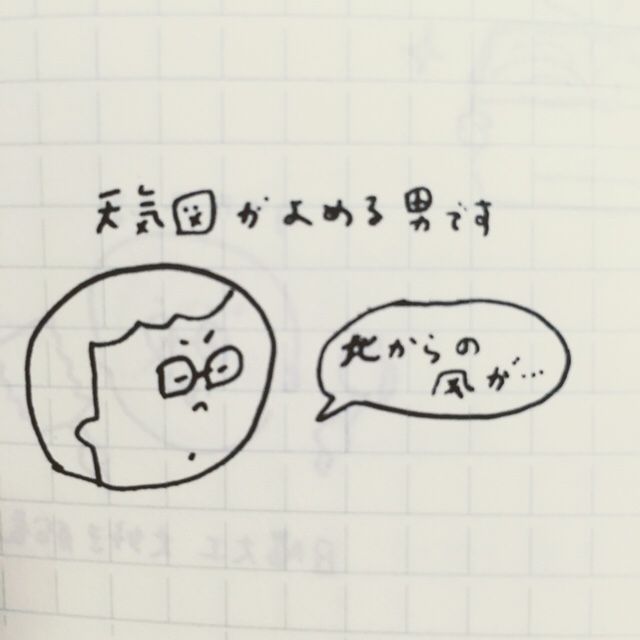 天気図がよめる男です
北からの
風が…